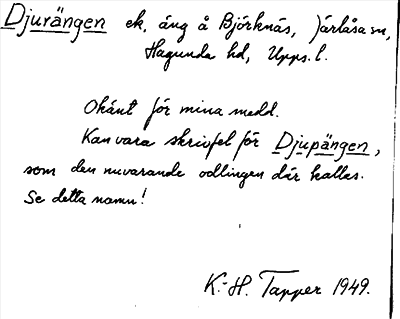 Djurängen ek, äng å Björknäs, Järlåsa sn,
Hagunda hd, Upps. l.
Okänt för mina medd.
Kan vara skrivfel för Djupängen,
som den nuvarande odlingen där kallas.
Se detta namn!
K.-H. Tapper 1949.